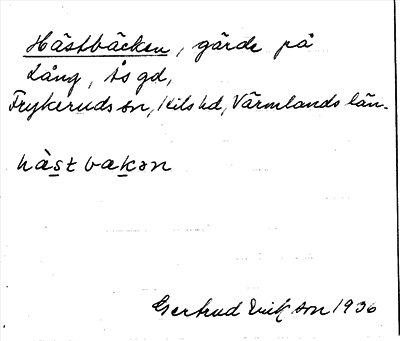 Hästbäcken, gärde på
Lång, ås gd,
Frykeruds sn, Kils hd, Värmlands län.
hàstbakən
Gertrud Erikson 1936